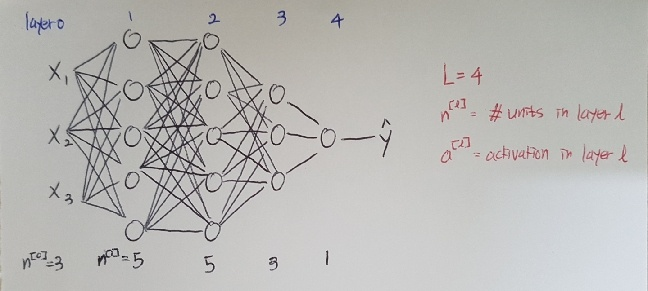 layer 0 1 2 3 4
X₁
X₂
X₃
ŷ
n^[0]=3 n^[1]=5 5 3 1
L=4
n^[l] = # units in layer l
a^[l] = activation in layer l